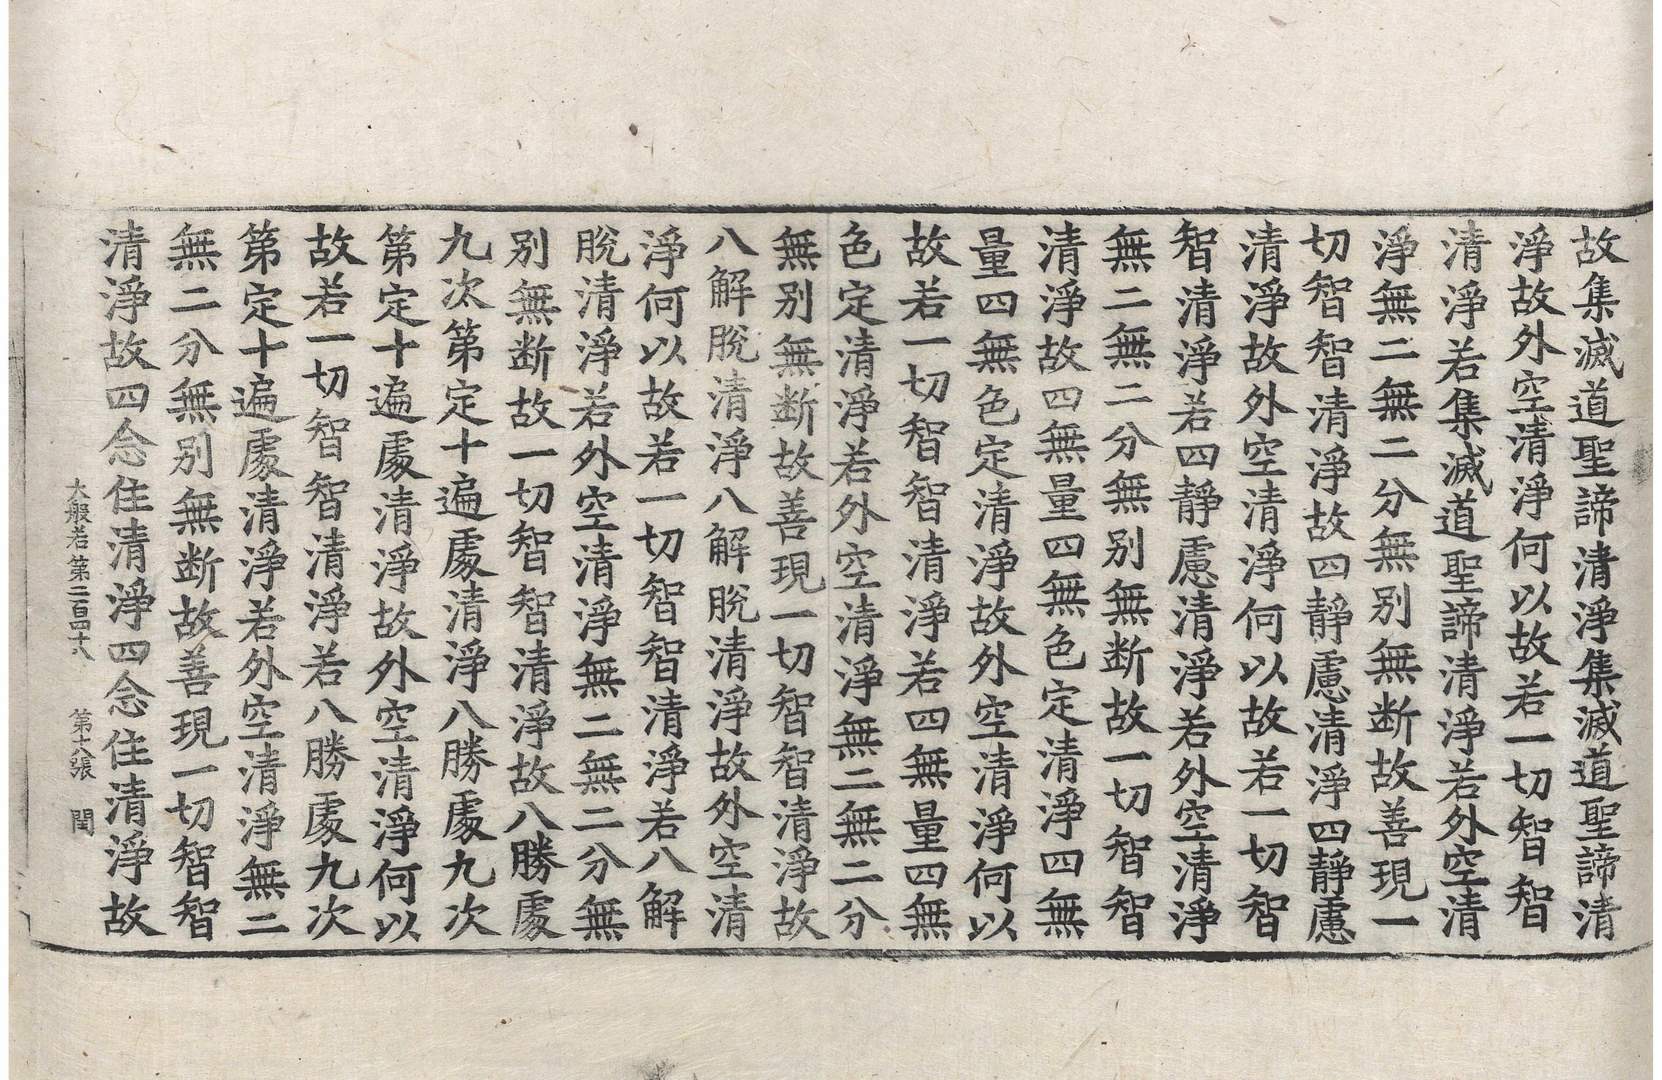 故集滅道聖諦清淨集滅道聖諦清
淨故外空清淨何以故若一切智智
清淨若集滅道聖諦清淨若外空清
淨無二無二分無別無断故善現一
切智智清淨故四靜慮清淨四靜慮
清淨故外空清淨何以故若一切智
智清淨若四靜慮清淨若外空清淨
無二無二分無別無断故一切智智
清淨故四無量四無色定清淨四無
量四無色定清淨故外空清淨何以
故若一切智智清淨若四無量四無
色定清淨若外空清淨無二無二分
無別無断故善現一切智智清淨故
八解脫清淨八解脫清淨故外空清
淨何以故若一切智智清淨若八解
脫清淨若外空清淨無二無二分無
別無断故一切智智清淨故八勝處
九次第定十遍處清淨八勝處九次
第定十遍處清淨故外空清淨何以
故若一切智智清淨若八勝處九次
第定十遍處清淨若外空清淨無二
無二分無別無断故善現一切智智
清淨故四念住清淨四念住清淨故
大般若第二百四十八 第十六張 閏